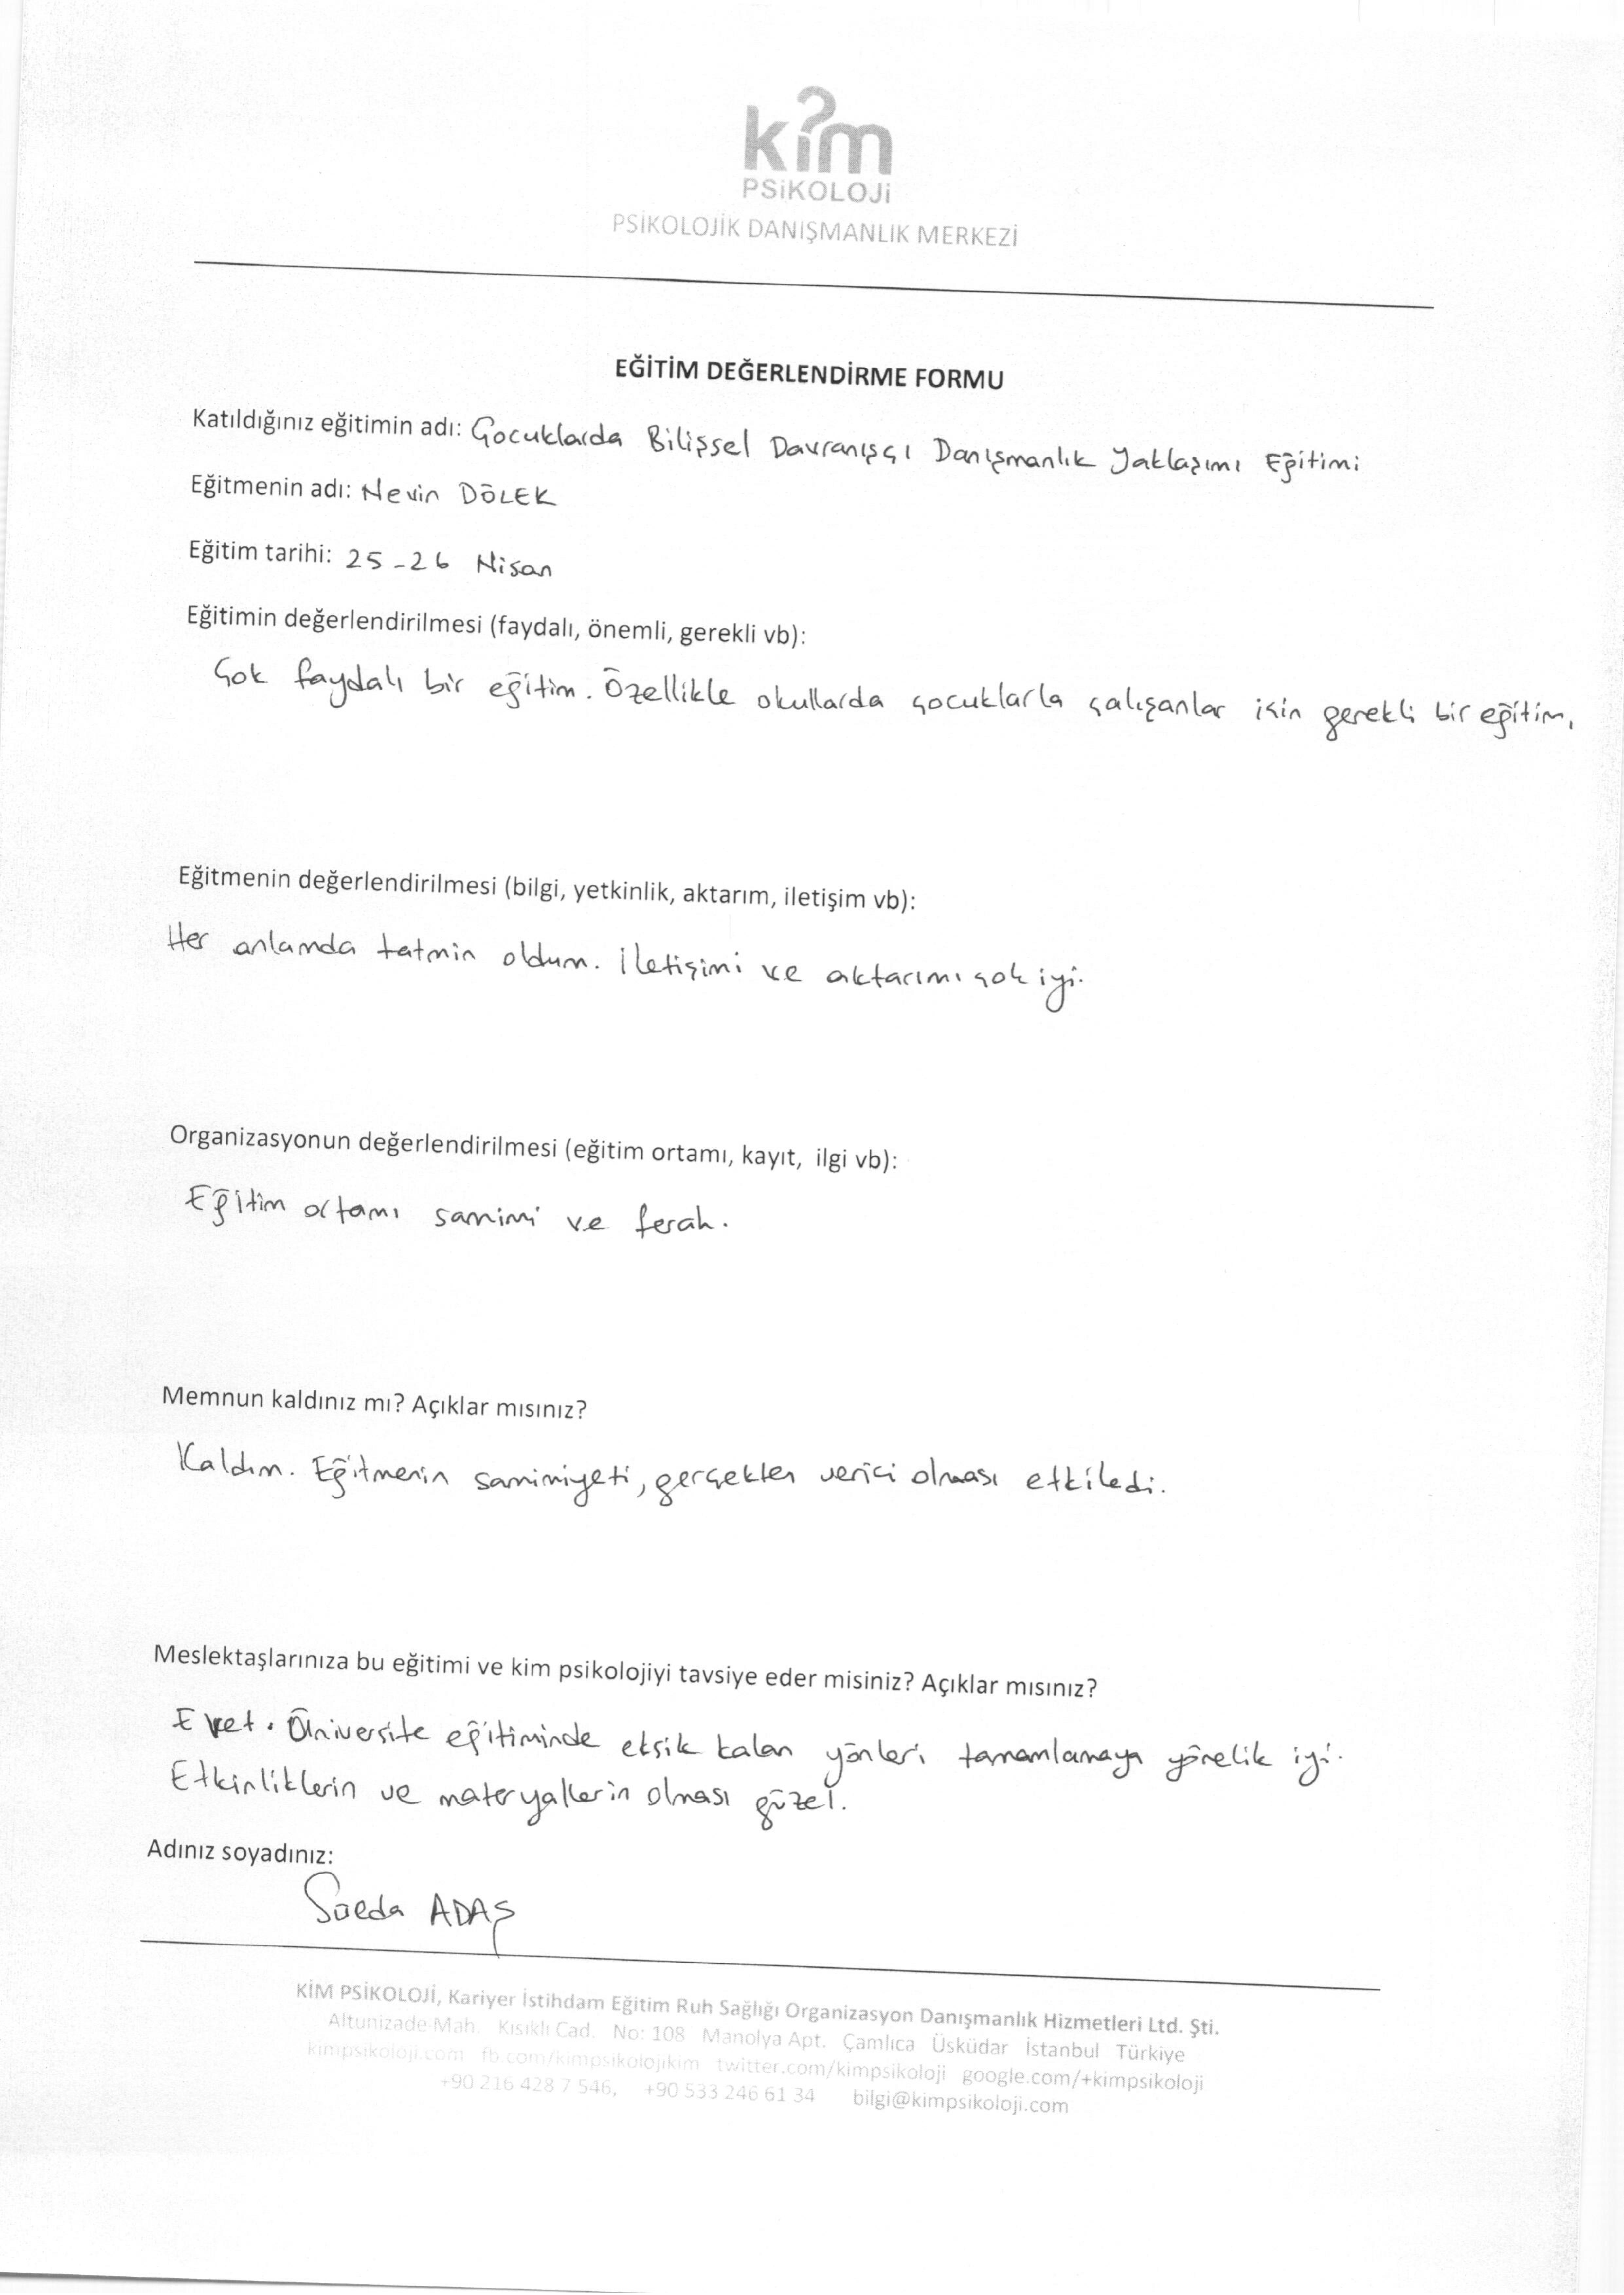 kim
PSiKOLOJi
PSİKOLOJİK DANIŞMANLIK MERKEZİ
EĞİTİM DEĞERLENDİRME FORMU
Katıldığınız eğitimin adı: Çocuklarda Bilişsel Davranışçı Danışmanlık Yaklaşımı Eğitimi
Eğitmenin adı: Nevin DÖLEK
Eğitim tarihi: 25-26 Nisan
Eğitimin değerlendirilmesi (faydalı, önemli, gerekli vb):
Çok faydalı bir eğitim. Özellikle okullarda çocuklarla çalışanlar için gerekli bir eğitim.
Eğitmenin değerlendirilmesi (bilgi, yetkinlik, aktarım, iletişim vb):
Her anlamda tatmin oldum. İletişimi ve aktarımı çok iyi.
Organizasyonun değerlendirilmesi (eğitim ortamı, kayıt, ilgi vb):
Eğitim ortamı samimi ve ferah.
Memnun kaldınız mı? Açıklar mısınız?
Kaldım. Eğitmenin samimiyeti, gerçekten verici olması etkiledi.
Meslektaşlarınıza bu eğitimi ve kim psikolojiyi tavsiye eder misiniz? Açıklar mısınız?
Evet. Üniversite eğitiminde eksik kalan yönleri tamamlamaya yönelik iyi.
Etkinliklerin ve materyallerin olması güzel.
Adınız soyadınız:
Süeda ADAŞ
KİM PSİKOLOJİ, Kariyer İstihdam Eğitim Ruh Sağlığı Organizasyon Danışmanlık Hizmetleri Ltd. Şti.
Altunizade Mah. Kısıklı Cad. No: 108 Manolya Apt. Çamlıca Üsküdar İstanbul Türkiye
kimpsikoloji.com fb.com/kimpsikolojikim twitter.com/kimpsikoloji google.com/+kimpsikoloji
+90 216 428 7 546, +90 533 246 61 34 bilgi@kimpsikoloji.com